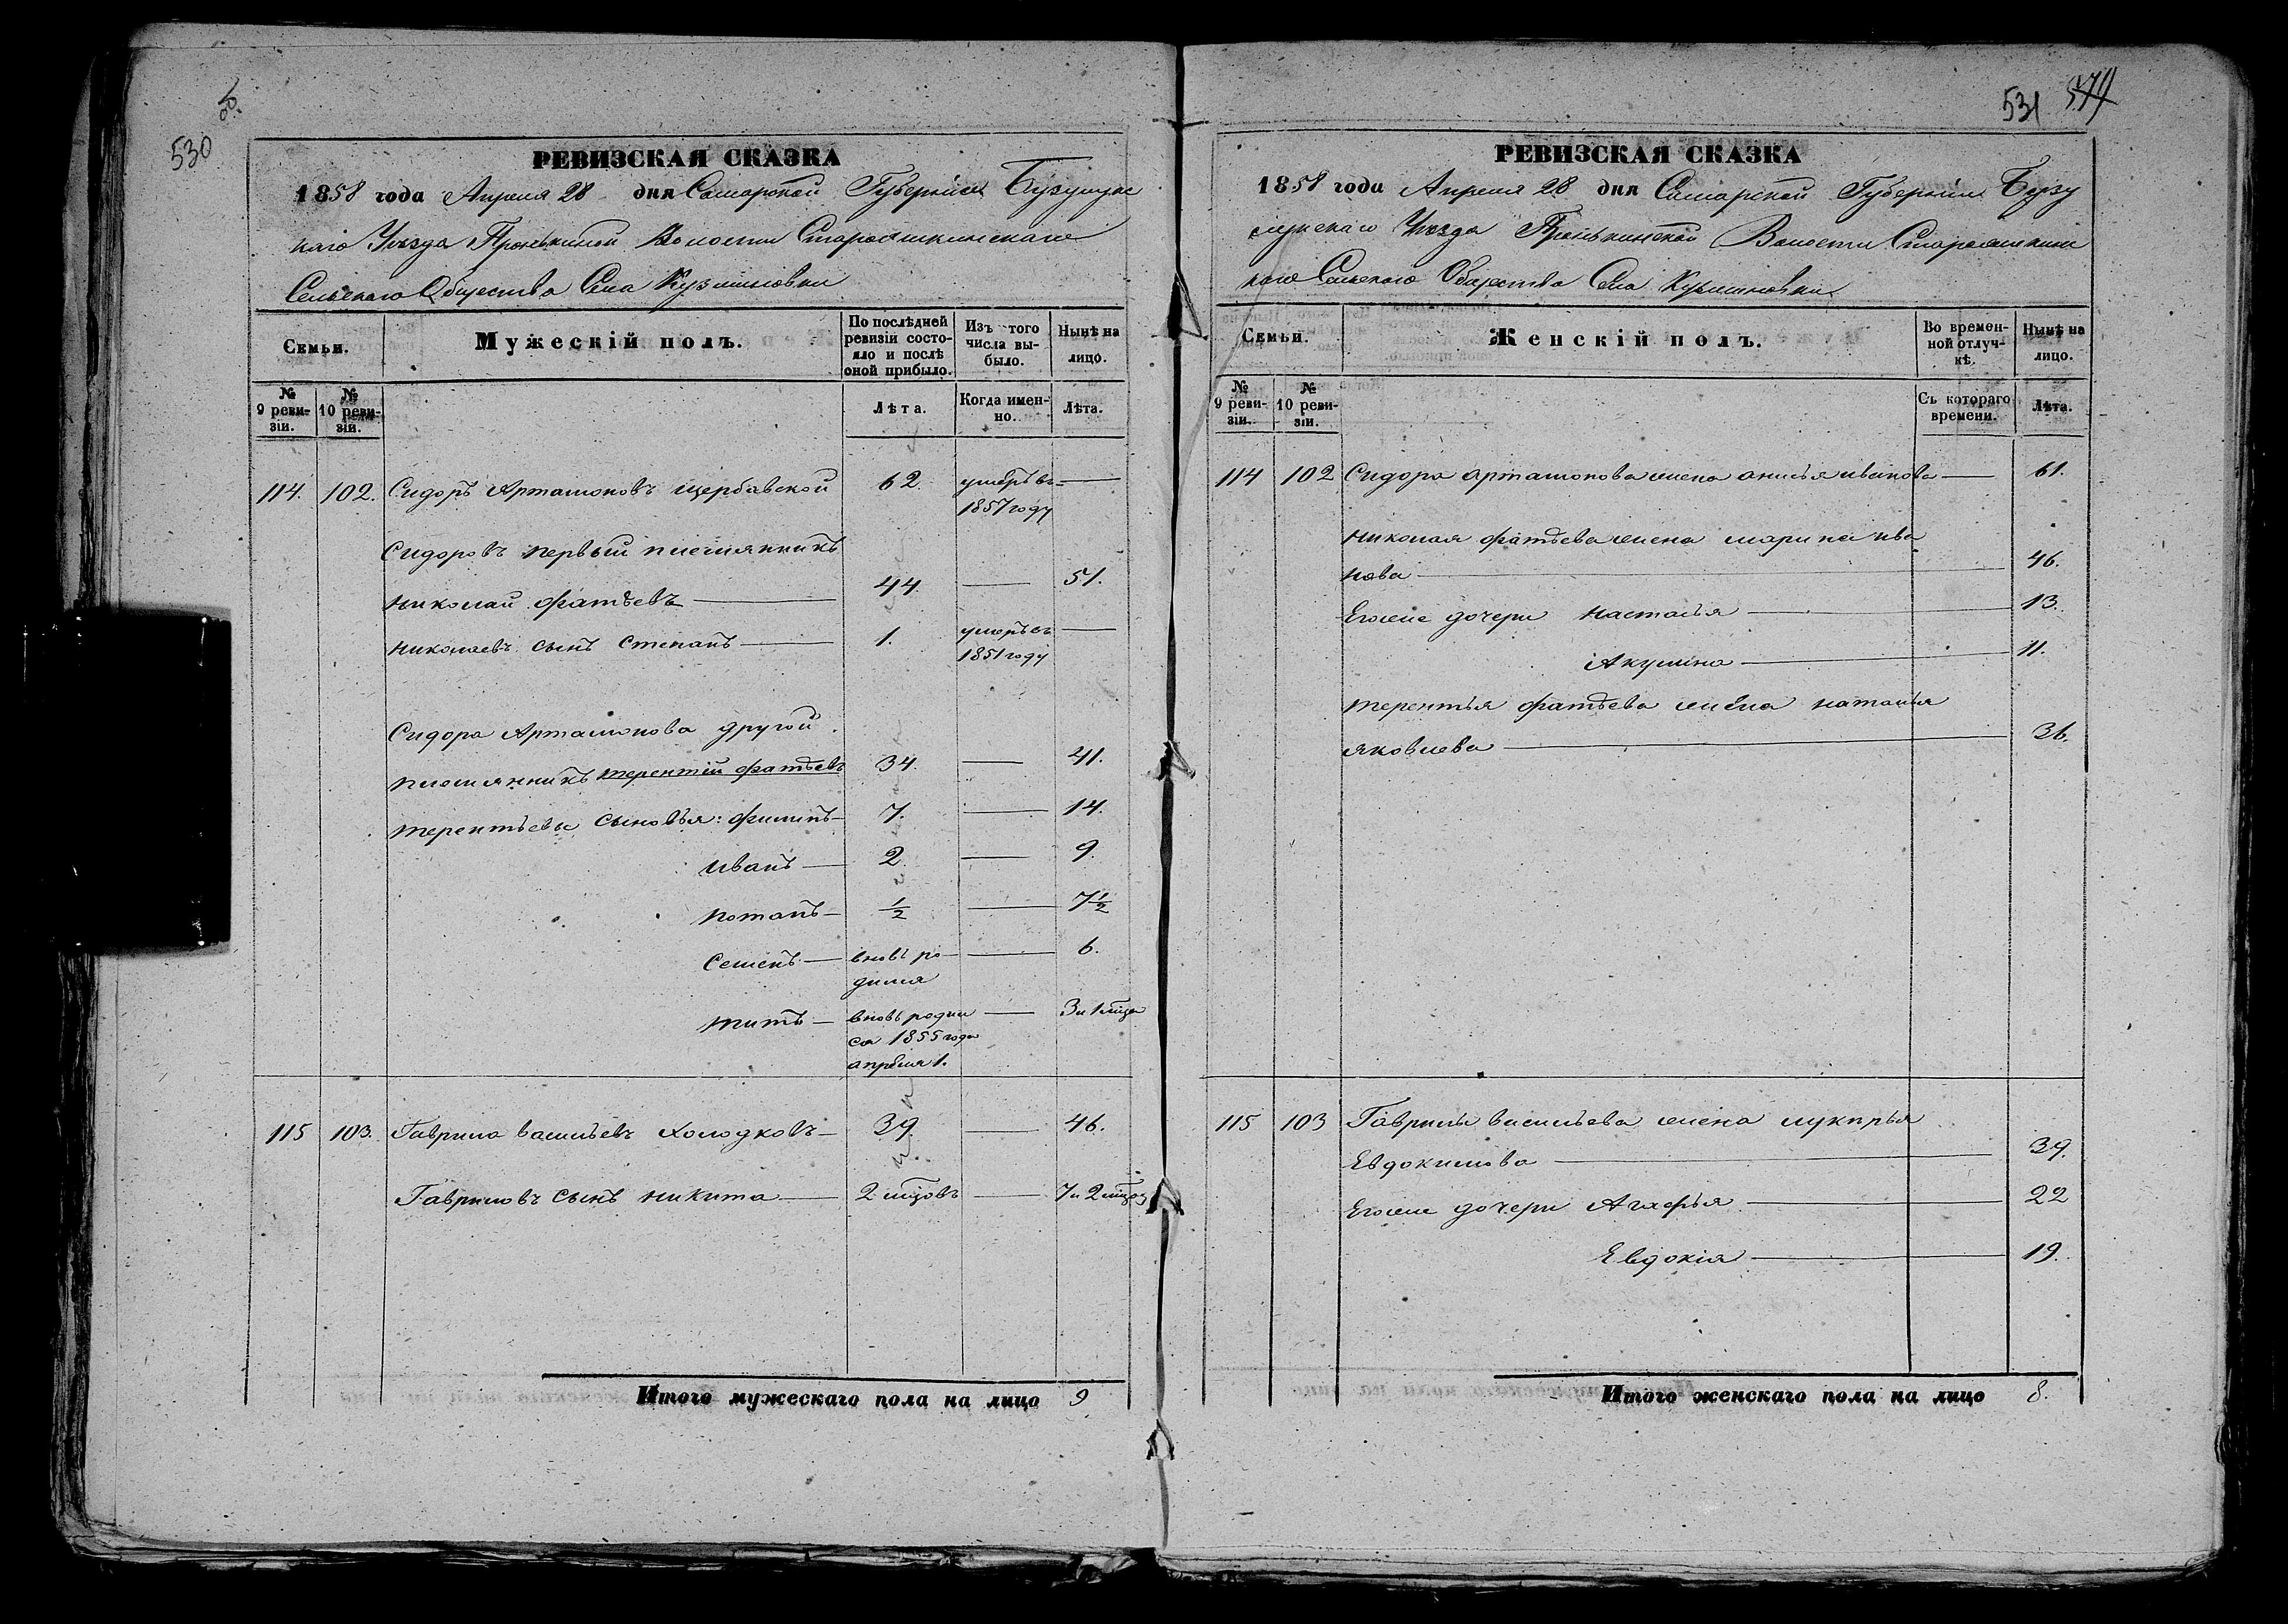 530
об.
РЕВИЗСКАЯ СКАЗКА
1858 года Апреля 28 дня Самарской Губерніи Бузулукс
каго Уѣзда Пронькиной Волости Староашкинскаго
Сельскаго Общества Села Кузминовки
Семьи.
Мужескій полъ.
По послѣдней ревизіи состояло и послѣ оной прибыло.
Изъ того числа выбыло.
Нынѣ на лицо.
№ 9 ревизіи.
№ 10 ревизіи.
Лѣта.
Когда именно.
Лѣта.
114. 102. Сидоръ Артамоновъ Щербавской 62. умеръ въ —
1857 году
Сидоровъ первый племянникъ
Николай Фатѣевъ — 44 — 51.
Николаевъ сынъ Степанъ — 1. умеръ въ —
1851 году
Сидора Артамонова другой
племянникъ Терентій Фатѣевъ 34. — 41.
Терентьевы сыновья: Филипъ — 7. — 14.
Иванъ — 2 — 9.
Потапъ — 1/2 — 7 1/2
Семенъ — вновь ро — — 6.
дился
Титъ — вновь роди — 3 и 1 мѣца
ся 1855 года
апреля 1.
115 103. Гаврила Васильевъ Холодковъ — 39. — 46.
Гавриловъ сынъ Никита — 2 мѣцовъ — 7 и 2 мѣцо
Итого мужескаго пола на лицо 9
531 577
РЕВИЗСКАЯ СКАЗКА
1858 года Апреля 28 дня Самарской Губерніи Бузу
лукскаго Уѣзда Пронькинской Волости Староашкинс
каго Сельскаго Общества Села Кузминовки
Семьи.
Женскій полъ.
Во временной отлучкѣ.
Нынѣ на лицо.
№ 9 ревизіи.
№ 10 ревизіи.
Съ котораго времени.
Лѣта.
114 102 Сидора Артамонова жена Анисья Иванова — 61.
Николая Фатѣева жена Марина Ива
нова — 46.
Егоже дочери Настасья — 13.
Акулина — 11.
Терентья Фатѣева жена Наталья
Яковлева — 36.
115 103 Гаврилы Васильева жена Лукирья
Евдокимова — 39.
Егоже дочери Агафья — 22
Евдокія — 19.
Итого женскаго пола на лицо 8.